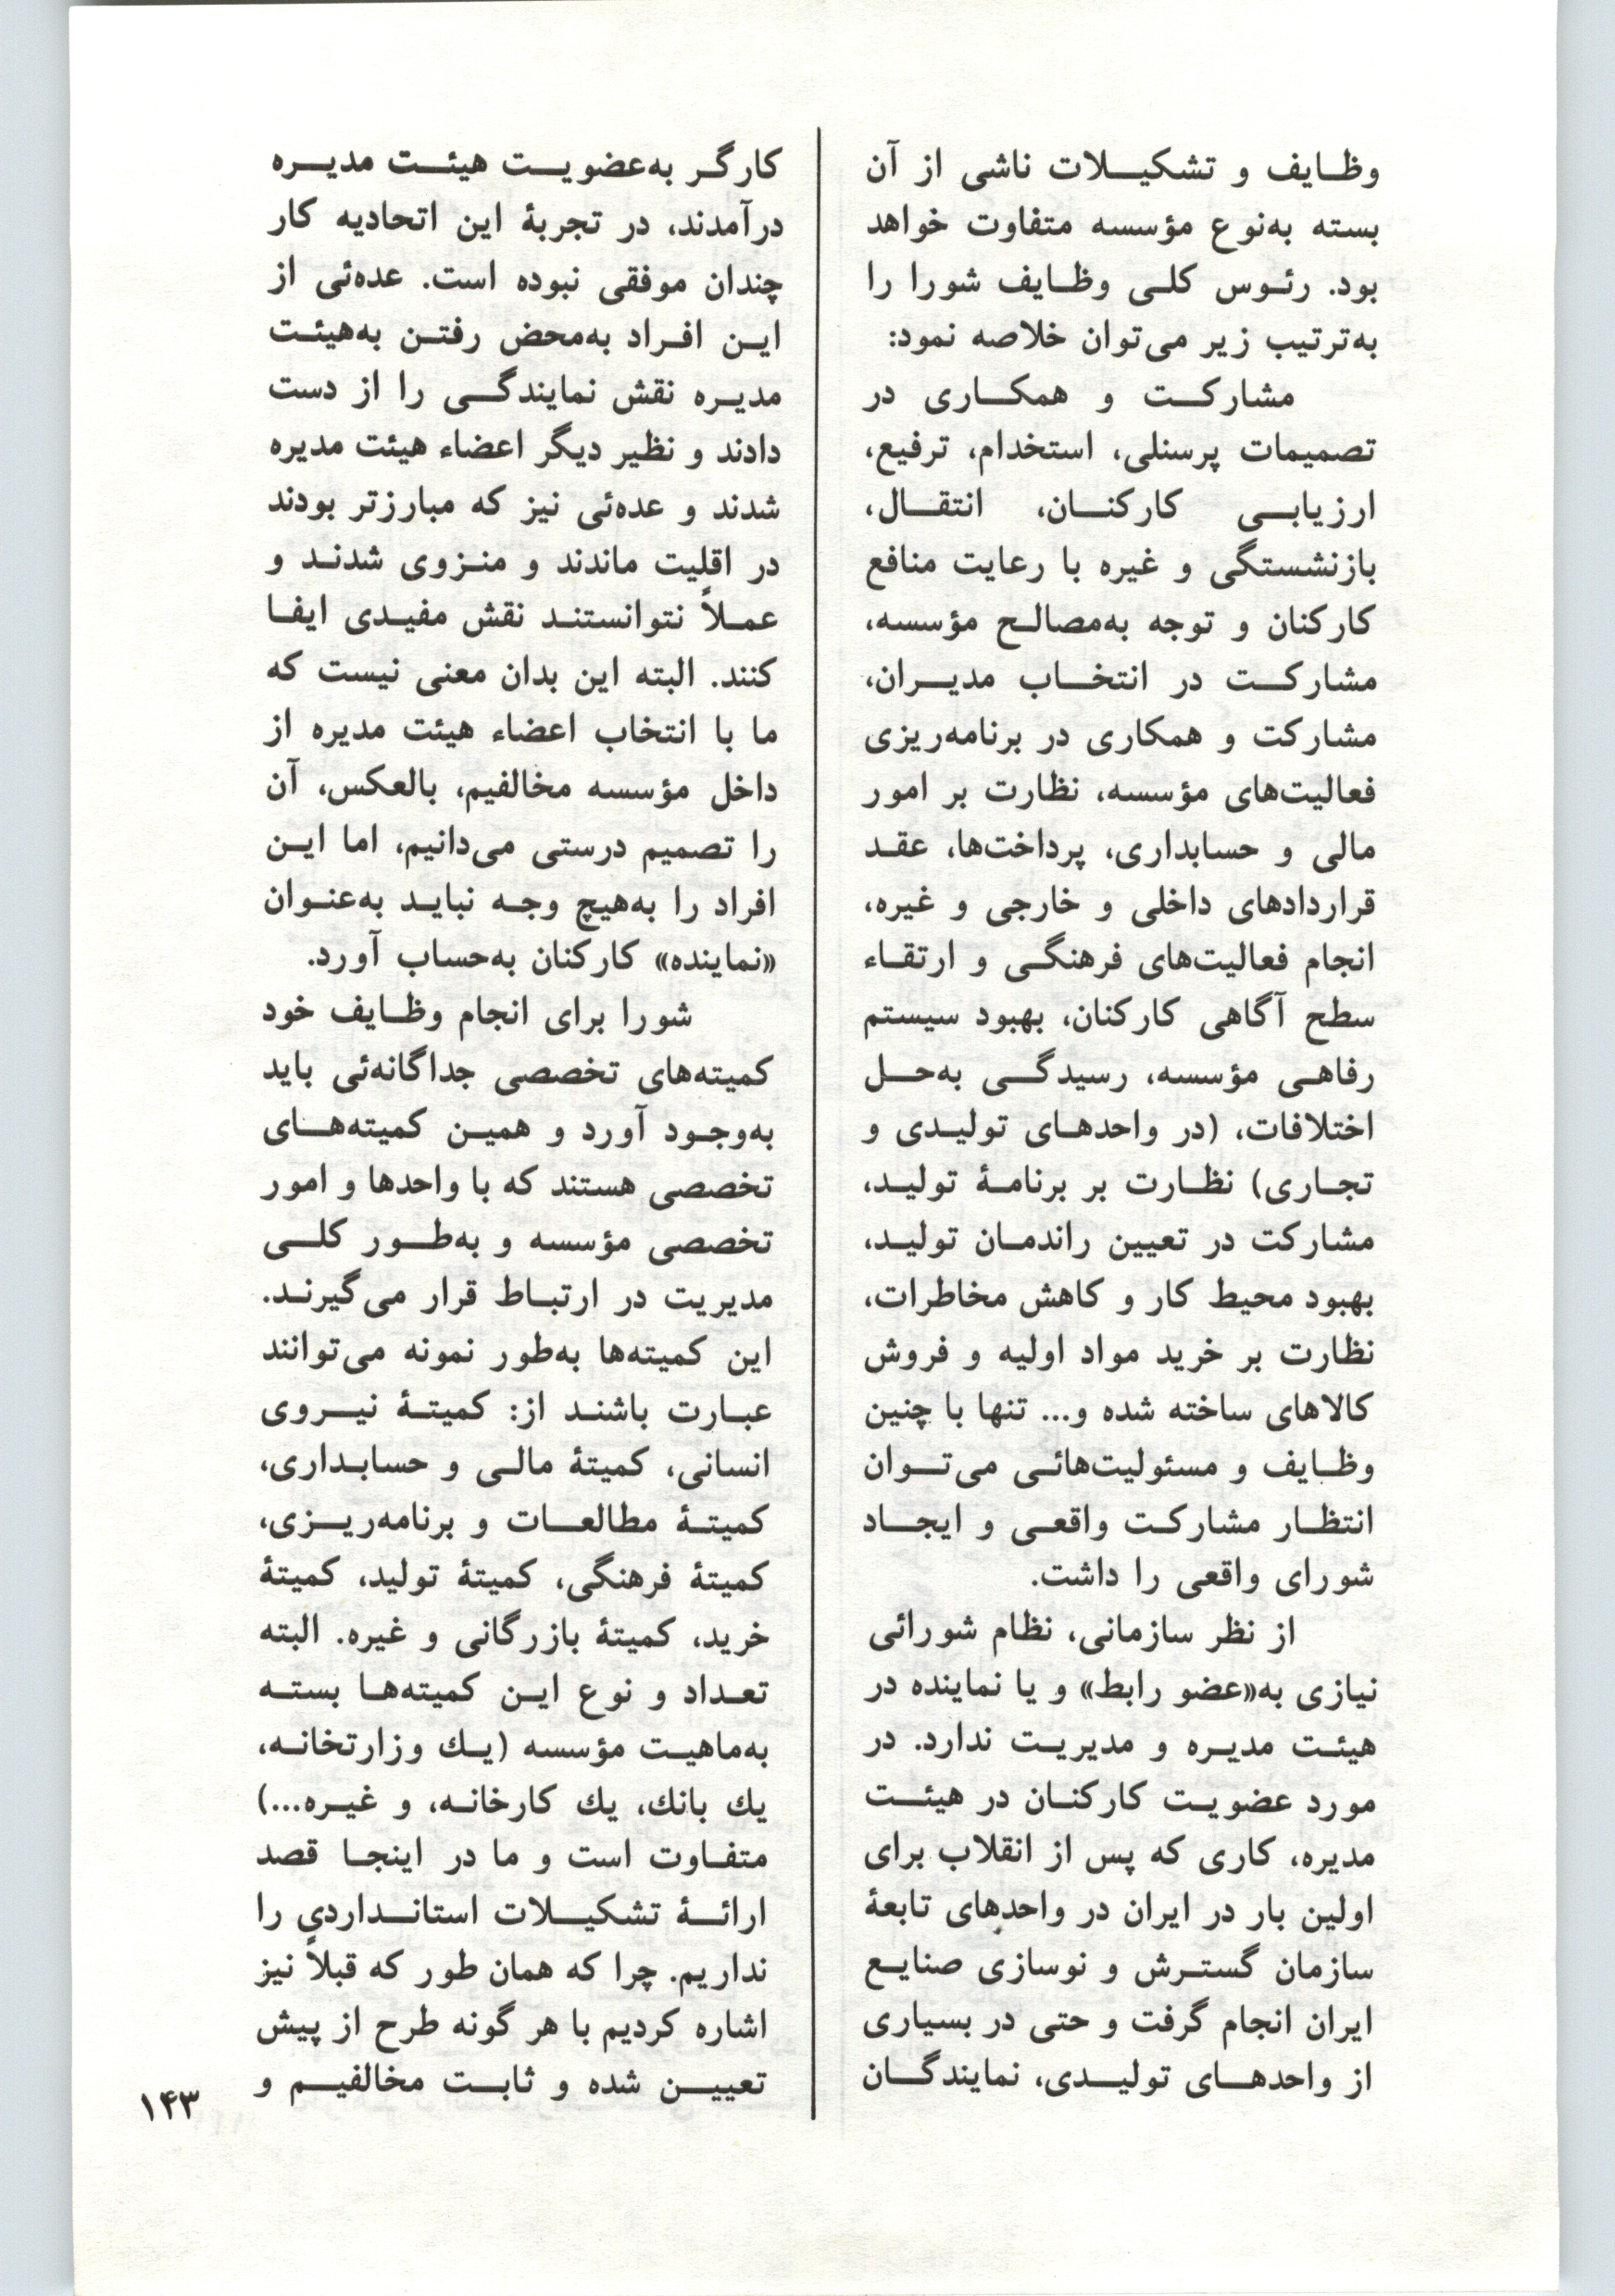 وظایف و تشکیلات ناشی از آن
بسته به‌نوع مؤسسه متفاوت خواهد
بود. رئوس کلی وظایف شورا را
به‌ترتیب زیر می‌توان خلاصه نمود:
مشارکت و همکاری در
تصمیمات پرسنلی، استخدام، ترفیع،
ارزیابی کارکنان، انتقال،
بازنشستگی و غیره با رعایت منافع
کارکنان و توجه به‌مصالح مؤسسه،
مشارکت در انتخاب مدیران،
مشارکت و همکاری در برنامه‌ریزی
فعالیت‌های مؤسسه، نظارت بر امور
مالی و حسابداری، پرداخت‌ها، عقد
قراردادهای داخلی و خارجی و غیره،
انجام فعالیت‌های فرهنگی و ارتقاء
سطح آگاهی کارکنان، بهبود سیستم
رفاهی مؤسسه، رسیدگی به‌حل
اختلافات، (در واحدهای تولیدی و
تجاری) نظارت بر برنامهٔ تولید،
مشارکت در تعیین راندمان تولید،
بهبود محیط کار و کاهش مخاطرات،
نظارت بر خرید مواد اولیه و فروش
کالاهای ساخته شده و... تنها با چنین
وظایف و مسئولیت‌هائی می‌توان
انتظار مشارکت واقعی و ایجاد
شورای واقعی را داشت.
از نظر سازمانی، نظام شورائی
نیازی به«عضو رابط» و یا نماینده در
هیئت مدیره و مدیریت ندارد. در
مورد عضویت کارکنان در هیئت
مدیره، کاری که پس از انقلاب برای
اولین بار در ایران در واحدهای تابعهٔ
سازمان گسترش و نوسازی صنایع
ایران انجام گرفت و حتی در بسیاری
از واحدهای تولیدی، نمایندگان
کارگر به‌عضویت هیئت مدیره
درآمدند، در تجربهٔ این اتحادیه کار
چندان موفقی نبوده است. عده‌ئی از
این افراد به‌محض رفتن به‌هیئت
مدیره نقش نمایندگی را از دست
دادند و نظیر دیگر اعضاء هیئت مدیره
شدند و عده‌ئی نیز که مبارزتر بودند
در اقلیت ماندند و منزوی شدند و
عملاً نتوانستند نقش مفیدی ایفا
کنند. البته این بدان معنی نیست که
ما با انتخاب اعضاء هیئت مدیره از
داخل مؤسسه مخالفیم، بالعکس، آن
را تصمیم درستی می‌دانیم، اما این
افراد را به‌هیچ وجه نباید به‌عنوان
«نماینده» کارکنان به‌حساب آورد.
شورا برای انجام وظایف خود
کمیته‌های تخصصی جداگانه‌ئی باید
به‌وجود آورد و همین کمیته‌های
تخصصی هستند که با واحدها و امور
تخصصی مؤسسه و به‌طور کلی
مدیریت در ارتباط قرار می‌گیرند.
این کمیته‌ها به‌طور نمونه می‌توانند
عبارت باشند از: کمیتهٔ نیروی
انسانی، کمیتهٔ مالی و حسابداری،
کمیتهٔ مطالعات و برنامه‌ریزی،
کمیتهٔ فرهنگی، کمیتهٔ تولید، کمیتهٔ
خرید، کمیتهٔ بازرگانی و غیره. البته
تعداد و نوع این کمیته‌ها بسته
به‌ماهیت مؤسسه (یك وزارتخانه،
یك بانك، یك کارخانه، و غیره...)
متفاوت است و ما در اینجا قصد
ارائهٔ تشکیلات استانداردی را
نداریم. چرا که همان طور که قبلاً نیز
اشاره کردیم با هر گونه طرح از پیش
تعیین شده و ثابت مخالفیم و
۱۴۳